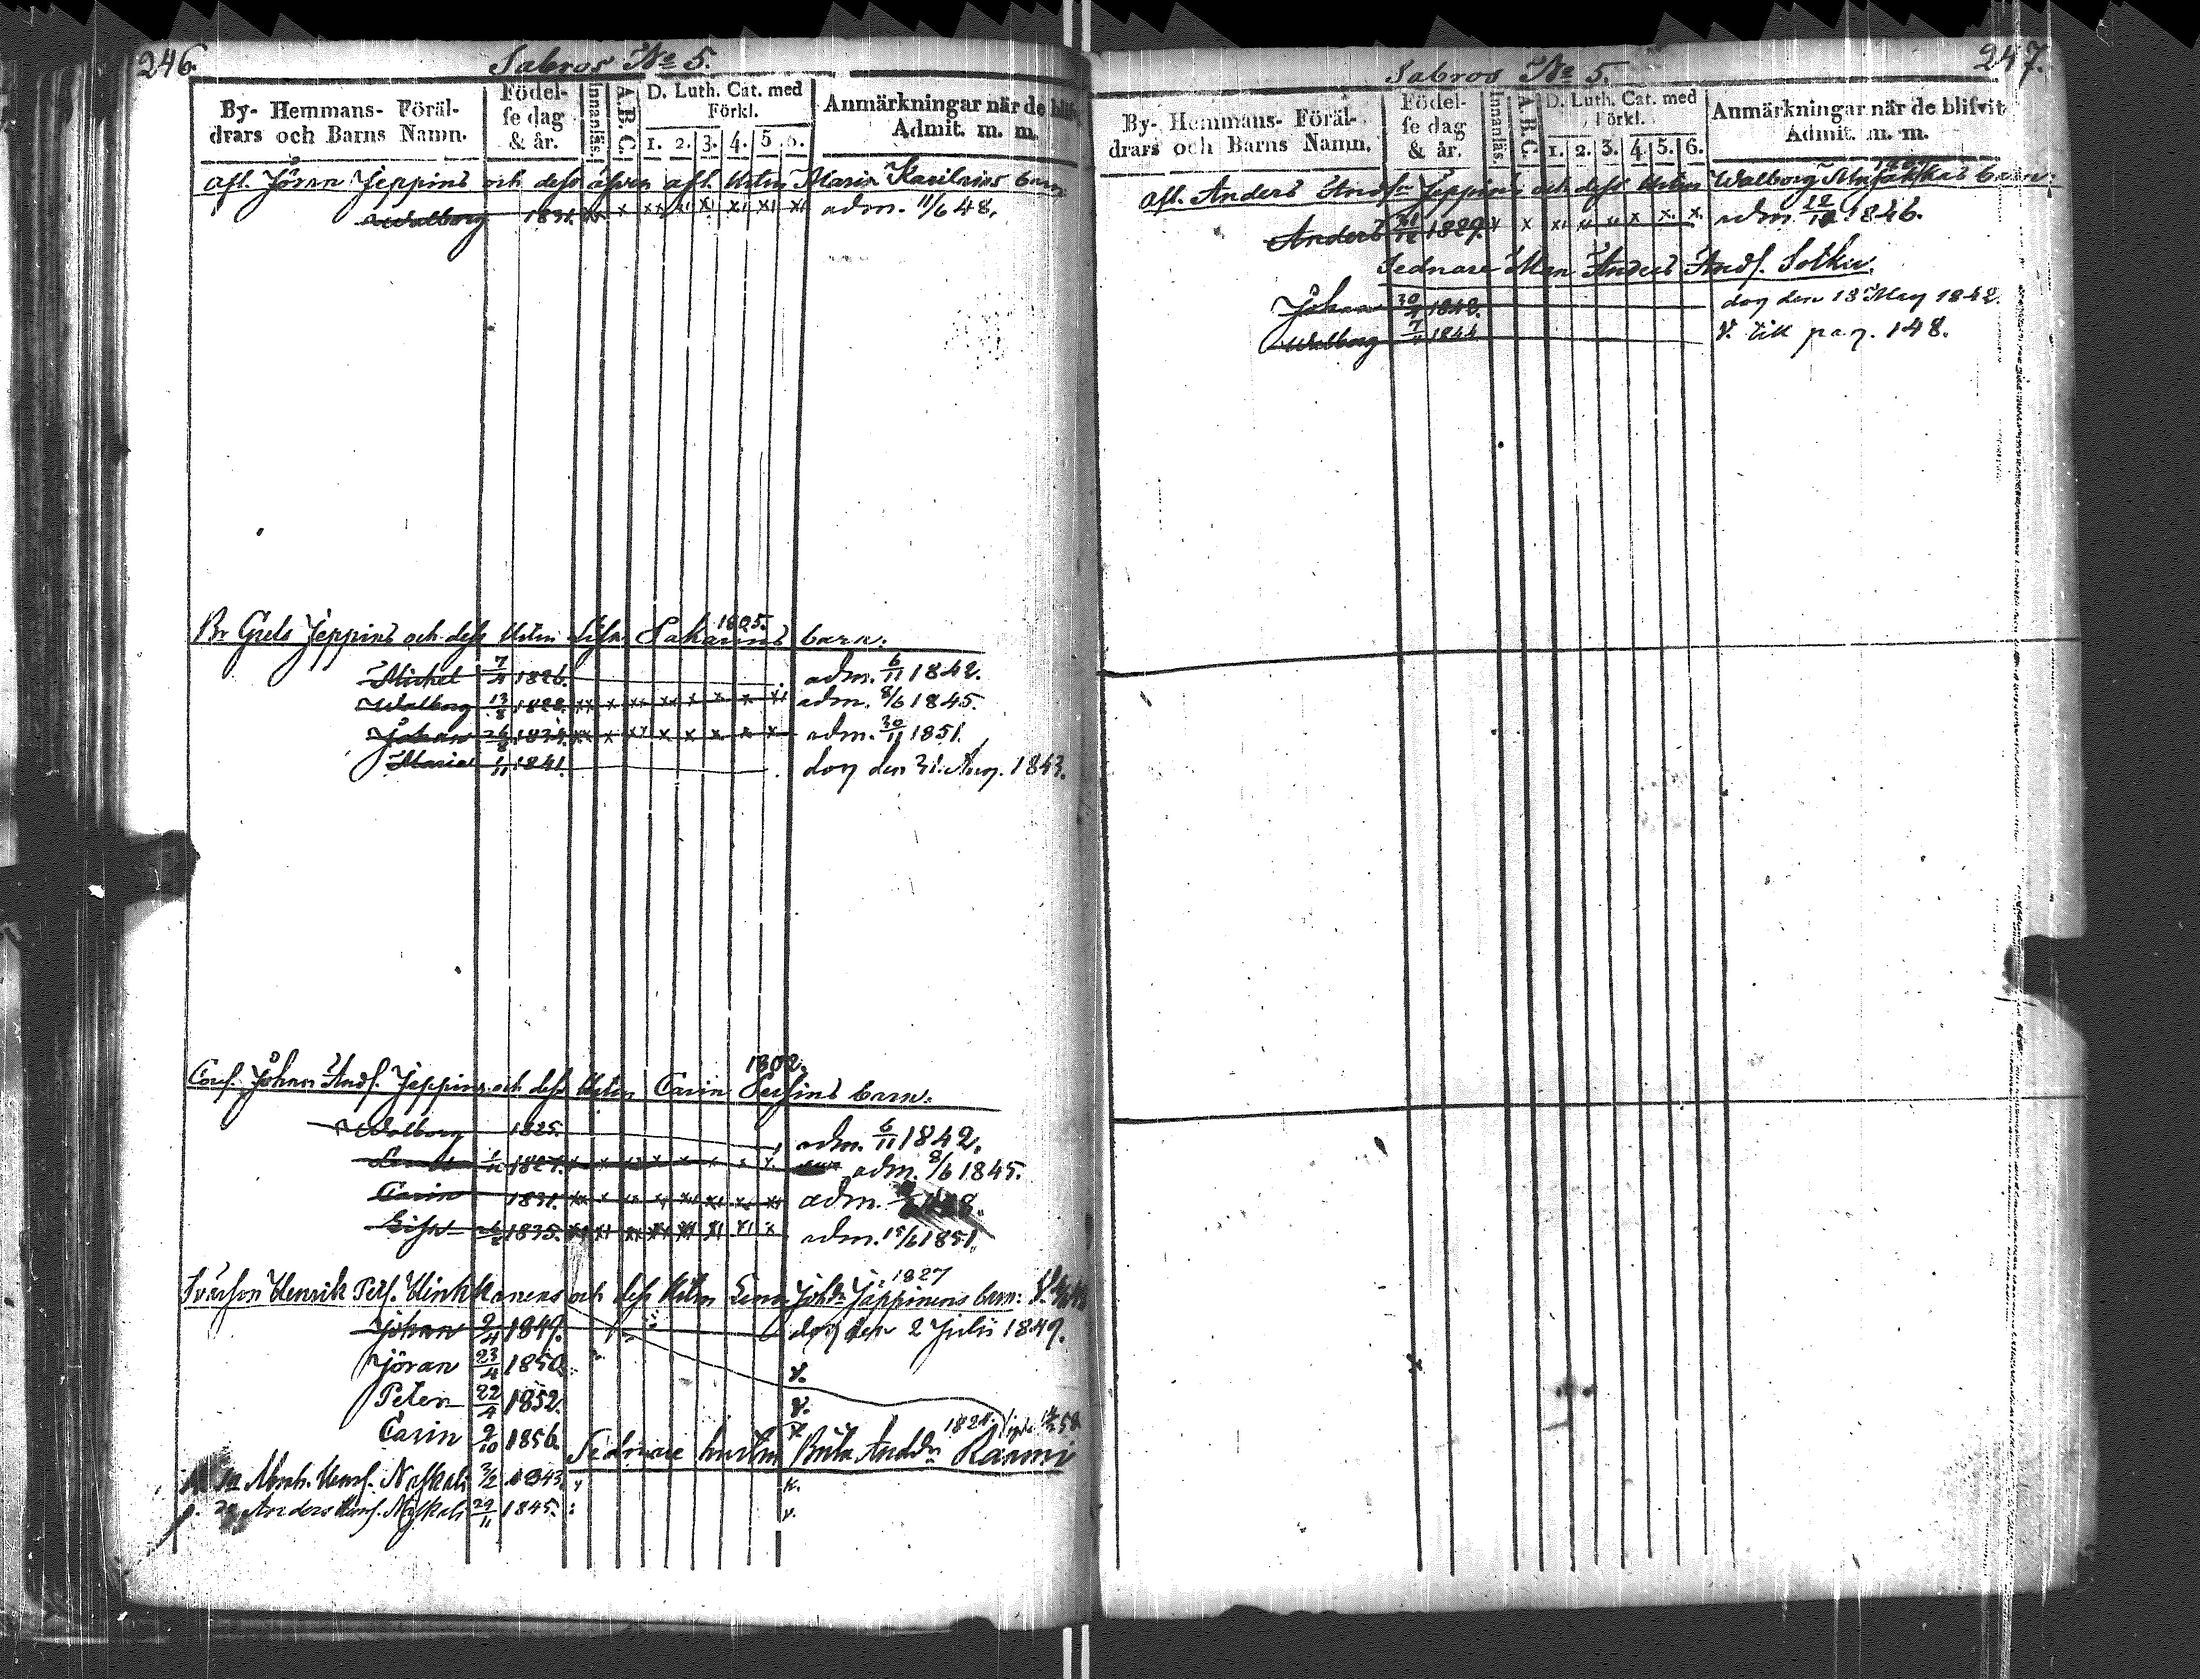 246.
Sabros No 5.
By- Hemmans- Föräl-
drars och Barns Namn.
Födel-
se dag
& år.
Innanläs.
A.B.C.
D. Luth. Cat. med
Förkl.
1. 2. 3. 4. 5 6.
Anmärkningar när de blif
Admit. m. m.
afl. Jöran Jeppins och dess äfven afl. Hstru Maria barn:
Walborg 1831. adm. 11/6 48.
Br Grels Jeppins och dess Hstru Lisa 1805. barn:
Michel 7/4 1826. adm. 6/11 1842.
Walborg 13/8 1828. adm. 8/6 1845.
Johan 1834. adm. 30/11 1851.
Maria 1/11 1841. dog den 31. Aug. 1843.
1802.
Cous. Johan Ands. Jeppins och dess Hstru Carin barn:
Walborg 1825. adm. 6/11 1842.
1827. adm. 8/6 1845.
Carin 1831. adm.
Lisa 1835. adm. 15/6 1851.
1827
Svårson Henrik Pers. Hinkkanens och dess Hstru Johdr Jäppinens barn:
Johan 2/4 1849. dog den 2 Julii 1849.
Jöran 23/4 1850. v.
Peter 22/4 1852. v.
Carin 2/10 1856.
Sednare hustru Brita Andsdr Raami
Abrah. Hens. Naskali 3/2 1843. v.
Anders Hens. Naskali 29/11 1845. v.
247.
Sabros No 5.
By- Hemmans- Föräl-
drars och Barns Namn.
Födel-
se dag
& år.
Innanläs.
A.B.C.
D. Luth. Cat. med
Förkl.
1. 2. 3. 4. 5. 6.
Anmärkningar när de blifvit
Admit. m. m.
afl. Anders Andsn Jeppins och dess Hstru Walborg barn:
Anders 1829. adm. 1846.
Sednare Man Anders Ands. Sotka.
Johan 30/4 1842. dog den 13 May 1842.
Walborg 1844 v. till pag. 148.